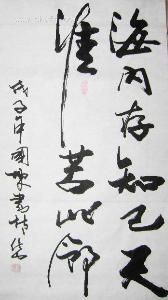 海内存知己天
涯若比鄰
戊子年國